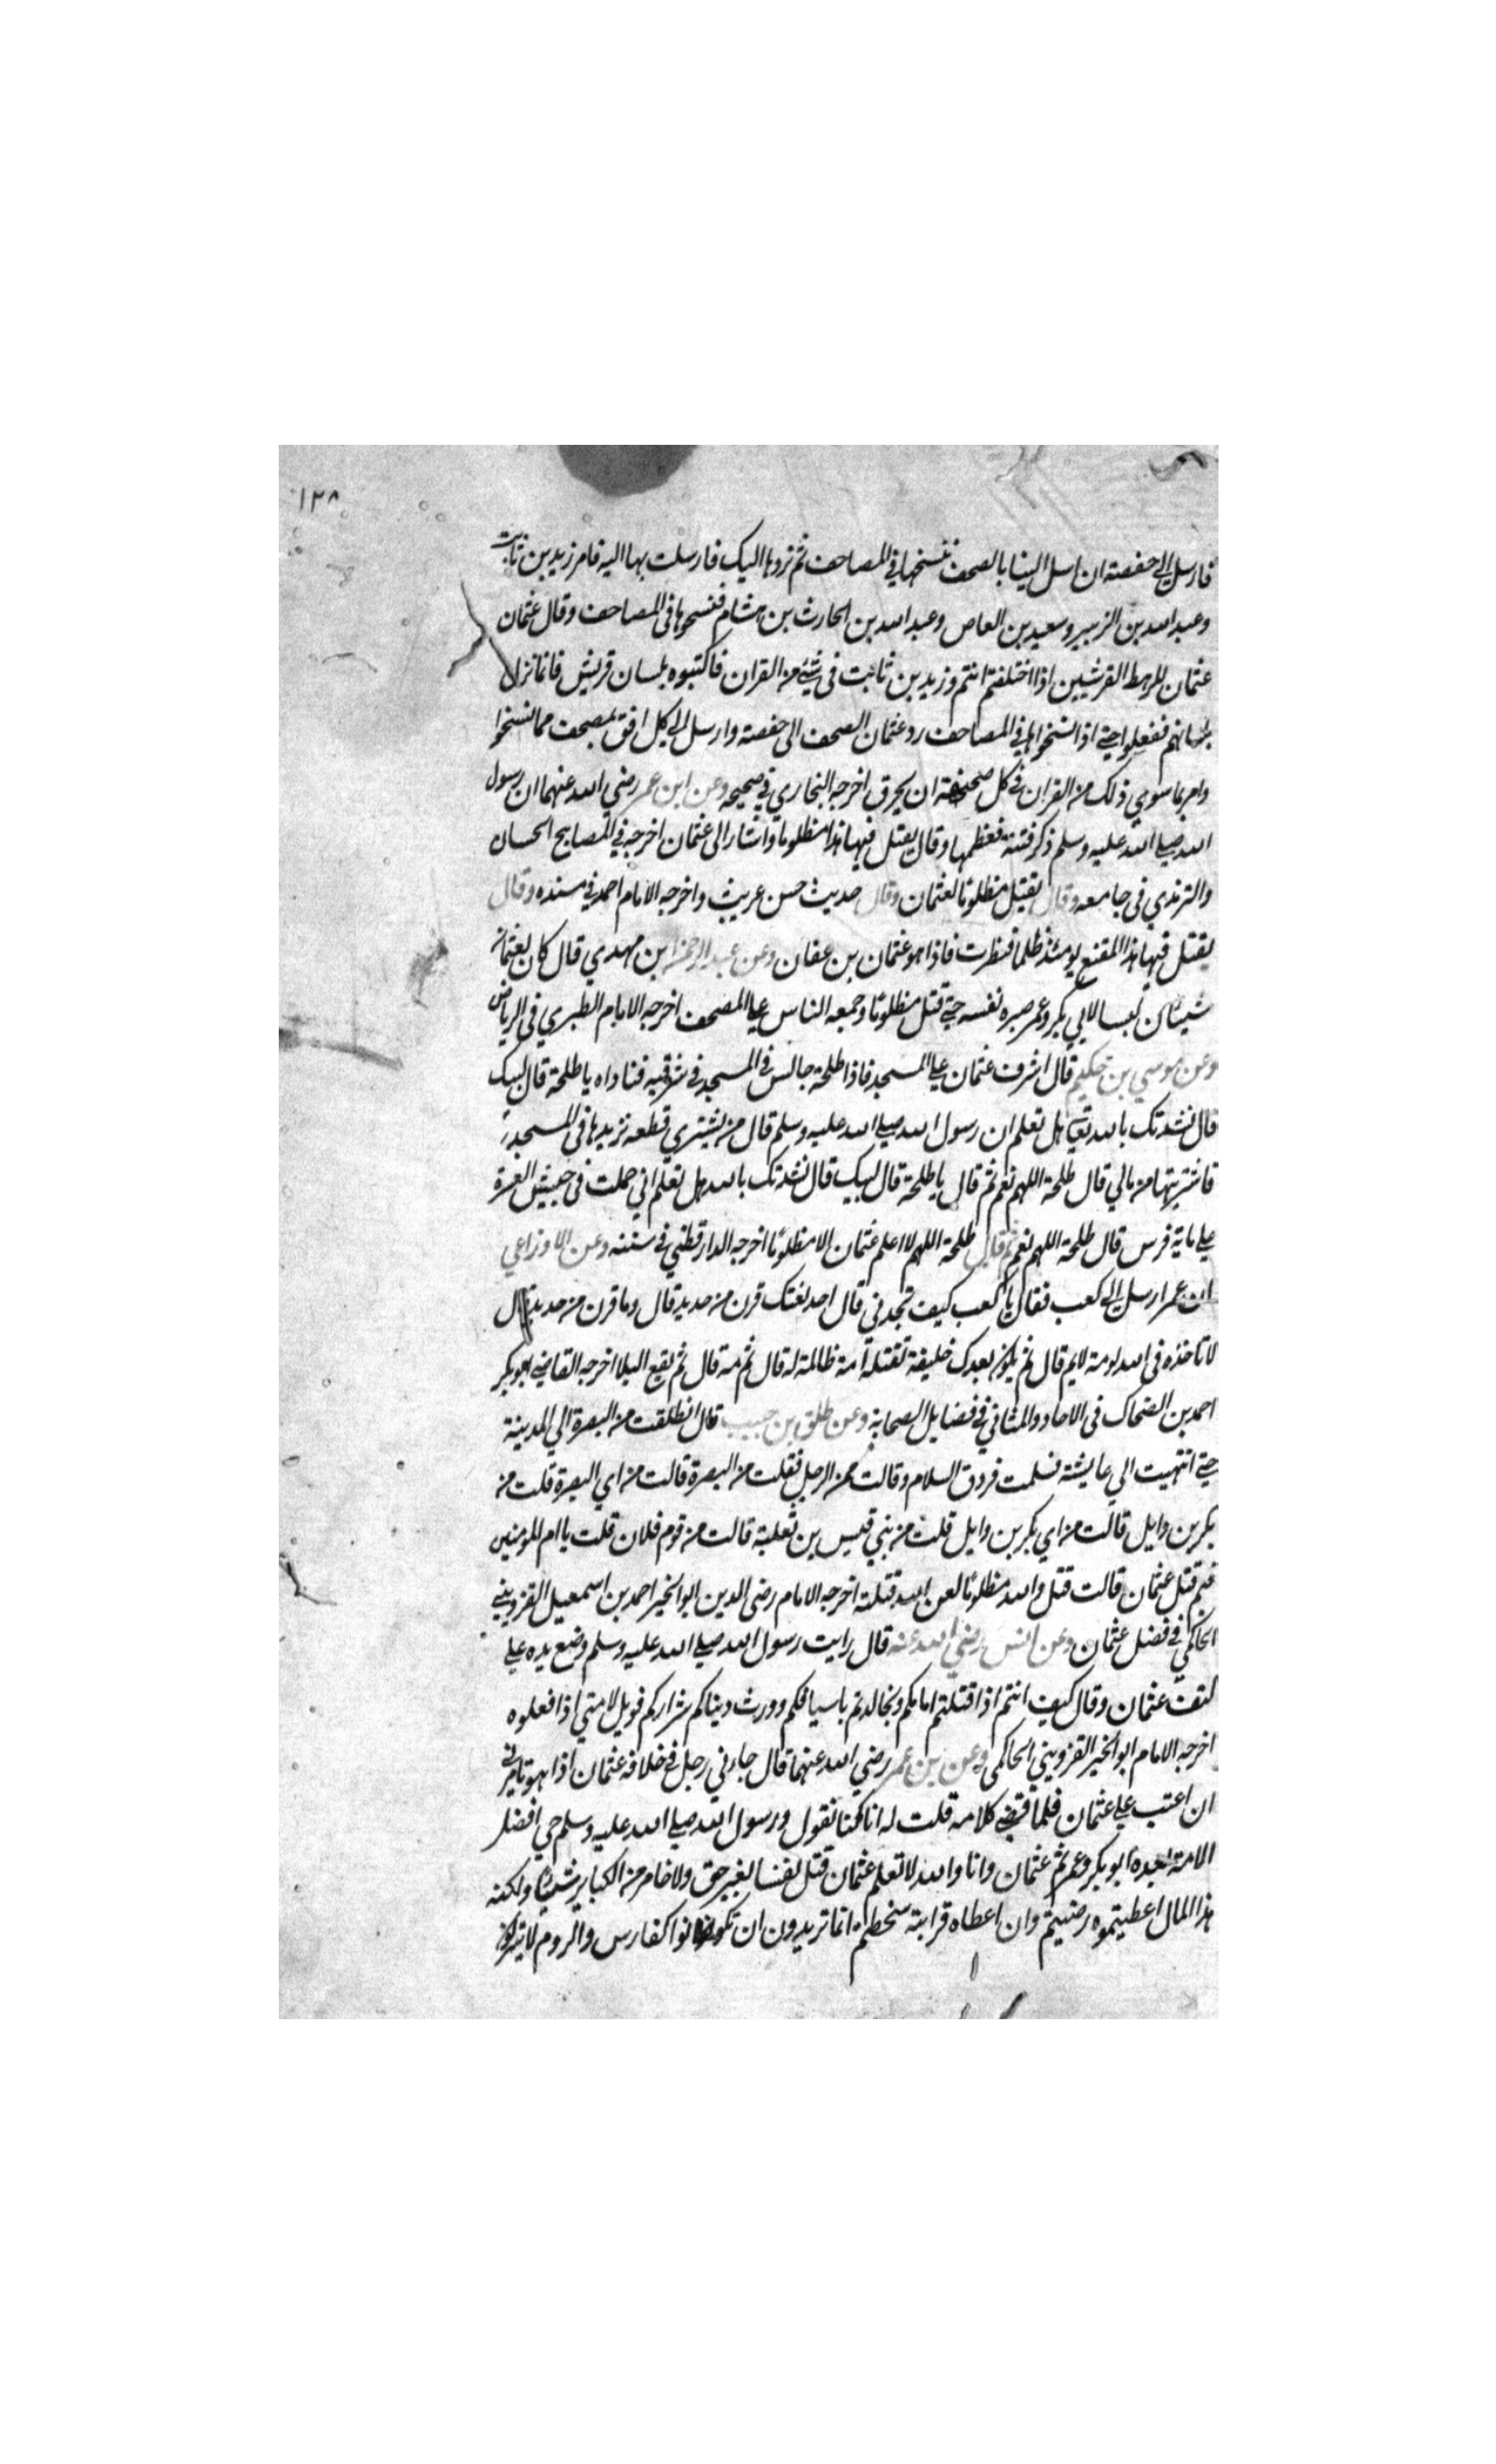 ١٢٨
فارسل الى حفصة ان ارسل الينا بالصحف ننسخها في المصاحف ثم نردها اليك فارسلت بها اليه فامر زيد بن ثابت
وعبد الله بن الزبير وسعيد بن العاص وعبد الله بن الحارث بن هشام فنسخوها في المصاحف وقال عثمان
عثمان للرهط القرشيين اذا اختلفتم انتم وزيد بن ثابت في شيء من القران فاكتبوه بلسان قريش فانما نزل
بلسانهم ففعلوا حتى اذا نسخوا في المصاحف رد عثمان الصحف الى حفصة وارسل الى كل افق بمصحف مما نسخوا
وامر بما سوى ذلك من القران في كل صحيفة ان يحرق اخرجه البخاري في صحيحه وعن ابن عمر رضي الله عنهما ان رسول
الله صلى الله عليه وسلم ذكر فتنة فعظمها وقال يقتل فيها هذا مظلوما واشار الى عثمان اخرجه في المصابيح الحسان
والترمذي في جامعه وقال يقتل مظلوما لعثمان وقال حديث حسن غريب واخرجه الامام احمد في مسنده وقال
يقتل فيها هذا المقنع يومئذ ظلما فنظرت فاذا هو عثمان بن عفان وعن عبد الرحمن بن مهدي قال كان لعثمان
شيئان ليسا لابي بكر وعمر صبره نفسه حتى قتل مظلوما وجمعه الناس على المصحف اخرجه الامام الطبري في الرياض
وعن موسي بن حكيم قال اشرف عثمان على المسجد فاذا طلحة جالس في المسجد في شرقيه فناداه يا طلحة قال لبيك
قال نشدتك بالله تعالى هل تعلم ان رسول الله صلى الله عليه وسلم قال من يشتري قطعه نزيدها في المسجد
فاشتريتها من مالي قال طلحة اللهم نعم ثم قال يا طلحة قال لبيك قال نشدتك بالله هل تعلم اني حملت في جيش العسرة
على ماية فرس قال طلحة اللهم نعم ثم قال طلحة اللهم لا اعلم عثمان الا مظلوما اخرجه الدارقطني في سننه وعن الاوزاعي
ان عمر ارسل الى كعب فقال يا كعب كيف تجدني قال اجد نعتك قرن من حديد قال وما قرن من حديد قال
لا تاخذه في الله لومة لايم قال ثم يكون بعدك خليفة تقتله امة ظالمة له قال ثم مه قال ثم يقع البلا اخرجه القاضي ابو بكر
احمد بن الضحاك في الاحاد والمثاني في فضايل الصحابة وعن طلق بن حبيب قال انطلقت من البصرة الي المدينة
حتى انتهيت الي عايشة فسلمت فردت السلام وقالت ممن الرجل فقلت من البصرة قالت من اي البصرة قلت من
بكر بن وايل قالت من اي بكر بن وايل قلت من بني قيس بن ثعلبة قالت من قوم فلان قلت يا ام المومنين
فيم قتل عثمان قالت قتل والله مظلوما لعن الله قتلته اخرجه الامام رضي الدين ابو الخير احمد بن اسمعيل القزويني
الحاكمي في فضل عثمان وعن انس رضي الله عنه قال رايت رسول الله صلى الله عليه وسلم وضع يده على
كتف عثمان وقال كيف انتم اذا قتلتم امامكم وتجالدتم باسيافكم وورث دنياكم شراركم فويل لامتي اذا فعلوه
اخرجه الامام ابو الخير القزويني الحاكمي وعن بن عمر رضي الله عنهما قال جاءني رجل في خلافة عثمان اذا هو يامرني
ان اعتب على عثمان فلما قضي كلامه قلت له انا كنا نقول ورسول الله صلى الله عليه وسلم حي افضل
الامة بعده ابو بكر وعمر ثم عثمان وانا والله لا نعلم عثمان قتل نفسا بغير حق ولا خامر من الكباير شيئا ولكنه
هذا المال اعطيتموه رضيتم وان اعطاه قرابته سخطتم انما تريدون ان تكونوا كفارس والروم لا يتركون